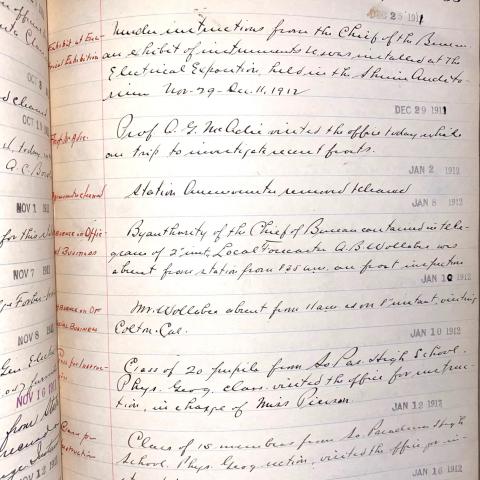 DEC 25 1911
Exhibit at Elec-
trical Exhibition
Under instructions from the Chief of the Bureau
an exhibit of instruments &c was installed at the
Electrical Exposition, held in the Shrine Audito-
rium Nov. 29 - Dec. 11, 1912
DEC 29 1911
Prof. A. G. McAdie visited the office today while
on trip to investigate recent frosts.
JAN 2 1912
Station Anemometer removed & cleaned
JAN 8 1912
Absence on Offic-
ial Business
By authority of the Chief of Bureau contained in tele-
gram of 2" inst, Local Forecaster A. B. Wollaber was
absent from station from on frost inspection
JAN 10 1912
Absence on Of-
ficial Business
Mr. Wollaber absent from 11 am on 8" instant, visiting
Colton, Cal.
JAN 10 1912
Class for Instruc-
tion
Class of 20 pupils from So Pas. High School.
Phys. Geog. class visited the office for instruc-
tion, in charge of Miss Pierson.
JAN 12 1912
Class for
Instruction
Class of 15 members from So. Pasadena High
School, Phys. Geog section, visited the office for in-
JAN 16 1912
OCT
OCT
A. C.
NOV 1
for this
NOV 7
NOV 8
Gen. Elect
NOV 16 191
from
received
NOV 12 191